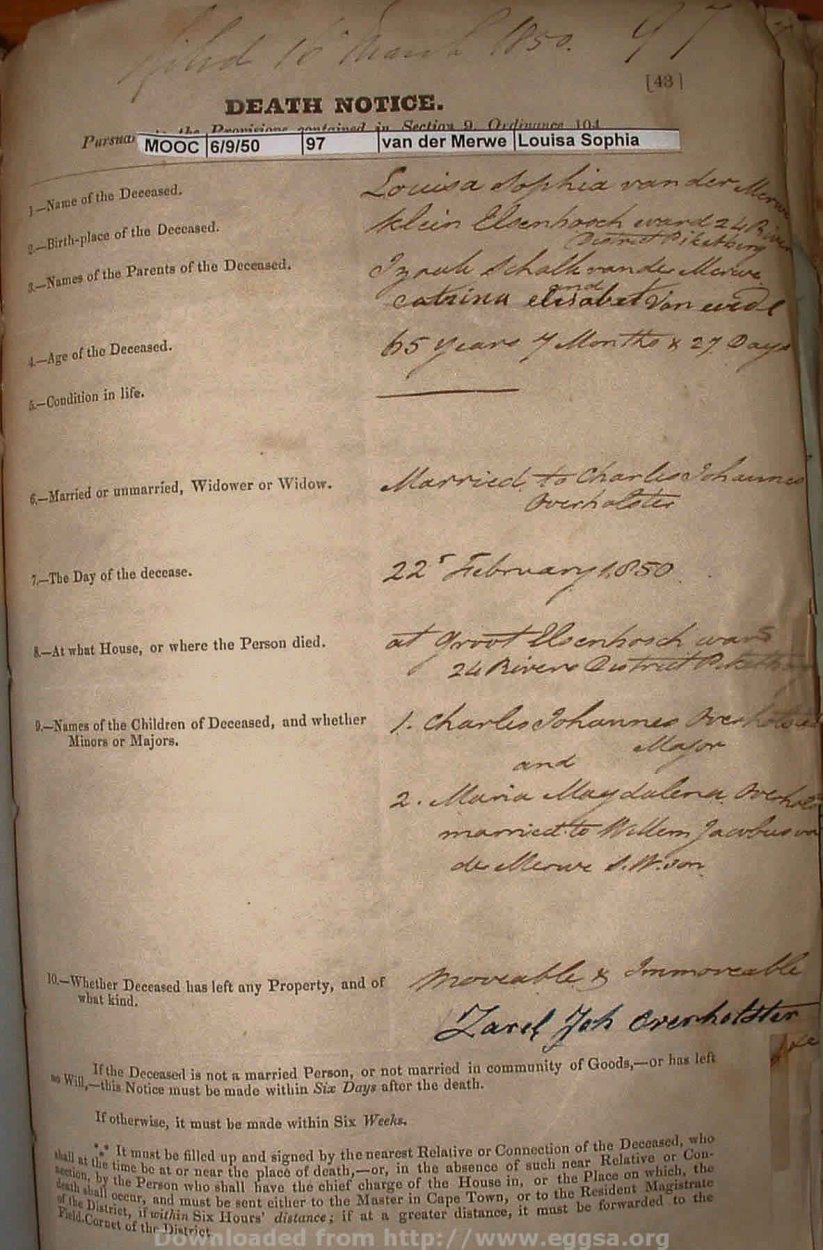 Filed 16 March 1850. 97
[43]
DEATH NOTICE.
the Provisions contained in Section 9, Ordinance 104
MOOC 6/9/50 97 van der Merwe Louisa Sophia
1.—Name of the Deceased. Louisa Sophia van der Merwe
2.—Birth-place of the Deceased. Klein Elsenbosch ward 24 Rivers
District Piketberg
3.—Names of the Parents of the Deceased. Izaak Schalk van der Merwe
and
Catrina elisabet Van
4.—Age of the Deceased. 65 Years 7 Months & 27 Days
5.—Condition in life.
6.—Married or unmarried, Widower or Widow. Married to Charles Johannes
Overholster
7.—The Day of the decease. 22 February 1850
8.—At what House, or where the Person died. at Groot Elsenbosch
24 Rivers District
9.—Names of the Children of Deceased, and whether
Minors or Majors.
1. Charles Johannes
Major
and
2. Maria Magdalena
married to Willem Jacobus
der Merwe S.W.son
10.—Whether Deceased has left any Property, and of
what kind.
Moveable & Immoveable
Joh Overholster
If the Deceased is not a married Person, or not married in community of Goods,—or has left
no Will,—this Notice must be made within Six Days after the death.
If otherwise, it must be made within Six Weeks.
*** It must be filled up and signed by the nearest Relative or Connection of the Deceased, who
shall at the time be at or near the place of death,—or, in the absence of such near Relative or Con-
nection, by the Person who shall have the chief charge of the House in, or the Place on which, the
death shall occur, and must be sent either to the Master in Cape Town, or to the Resident Magistrate
of the District, if within Six Hours' distance; if at a greater distance, it must be forwarded to the
Field-Cornet of the District.
Downloaded from http://www.eggsa.org